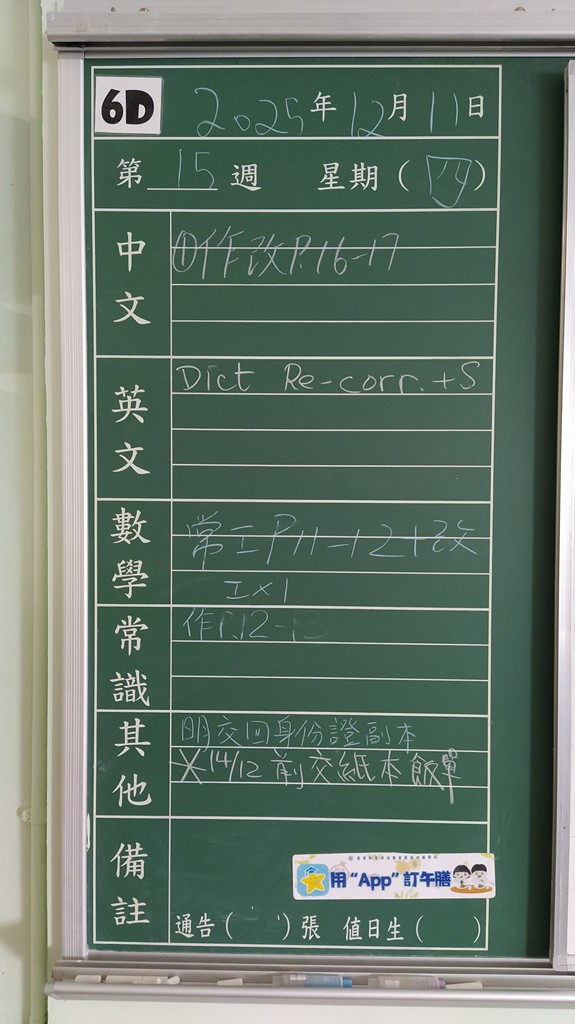 6D 2025年12月11日
第15週 星期(四)
中文
①作改P.16-17
英文
Dict Re-corr.+S
數學
常工P11-12+改
工×1
常識
作P.12-
其他
明交回身份證副本
※14/12前交紙本飯單
備註
用“App”訂午膳
通告( )張 值日生( )